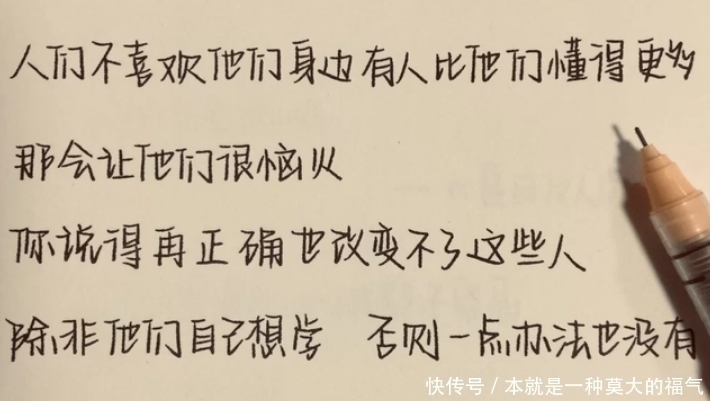 人们不喜欢他们身边有人比他们懂得更多
那会让他们很恼火
你说得再正确也改变不了这些人
除非他们自己想学 否则一点办法也没有
快传号/本就是一种莫大的福气